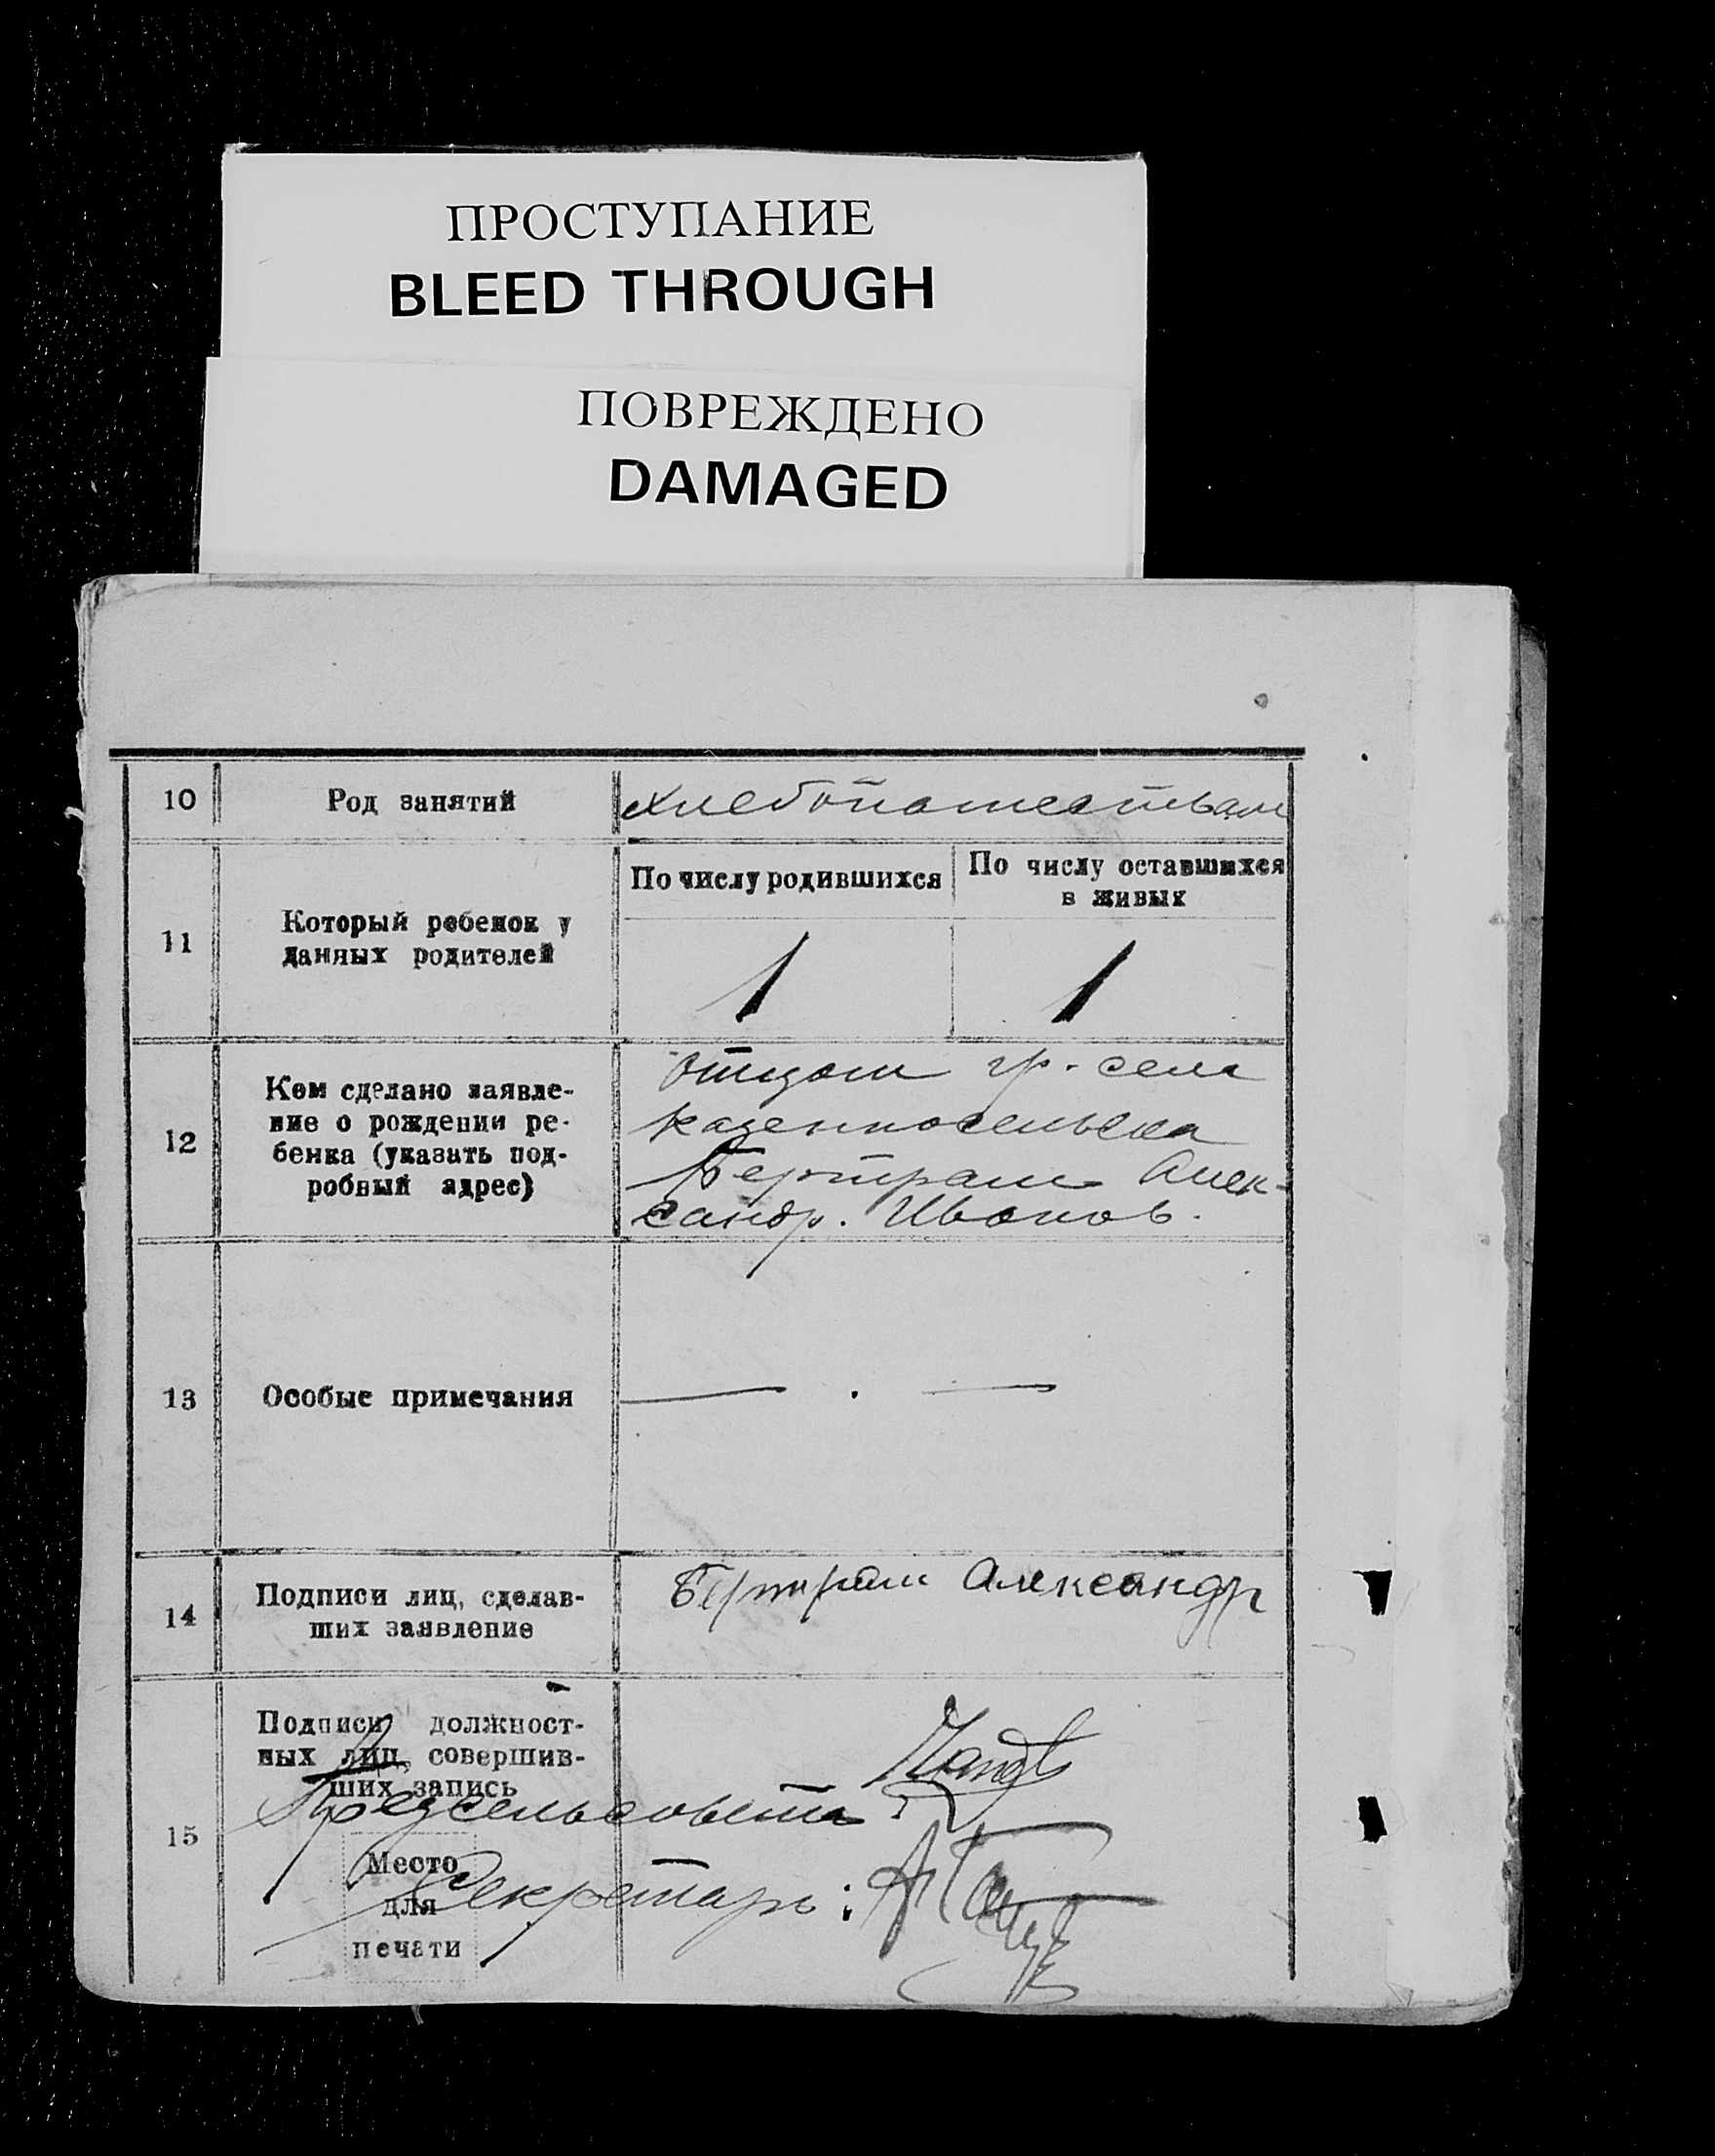 ПРОСТУПАНИЕ
BLEED THROUGH
ПОВРЕЖДЕНО
DAMAGED
10
Род занятий
хлебопашеством
11
Который ребенок у
данных родителей
По числу родившихся
По числу оставшихся
в живых
1
1
12
Кем сделано заявле-
ние о рождении ре-
бенка (указать под-
робный адрес)
отцом гр. села
казенносельска
Бертрам Алек-
сандр. Иванов.
13
Особые примечания
— . —
14
Подписи лиц, сделав-
ших заявление
Бертрам Александр
15
Подписи должност-
ных лиц, совершив-
ших запись
Предсельсовета
Место
для
печати
Секретарь: